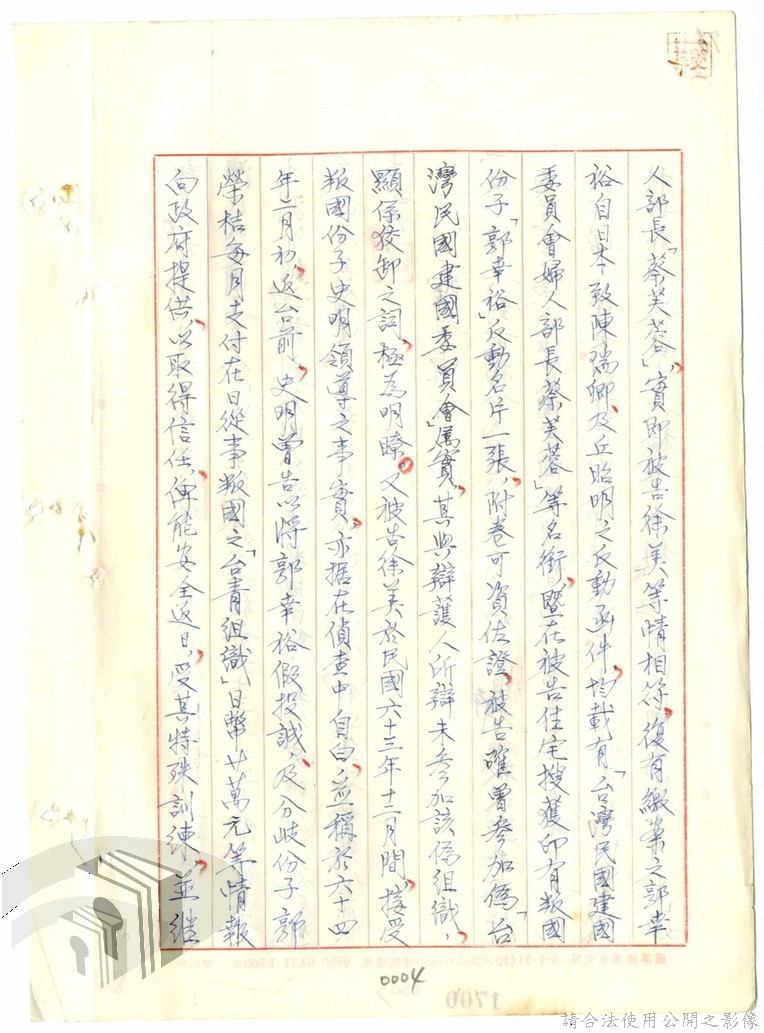 人部長「蔡芙蓉」，實即被告徐美等情相符，復有繳案之郭幸
裕自日本致陳瑞卿、及丘昭明之反動函件，均載有「台灣民國建國
委員會婦人部長蔡芙蓉」等名銜，暨在被告住宅搜獲印有叛國
份子「郭幸裕」反動名片一張，附卷可資佐證，被告確曾參加偽「台
灣民國建國委員會」屬實，其與辯護人所辯未參加該偽組織，
顯係狡卸之詞，極為明瞭。又被告徐美於民國六十三年十二月間，接受
叛國份子史明領導之事實，亦据在偵查中自白，並稱於六十四
年二月初，返台前，史明曾告以將郭幸裕假投誠、及分歧份子郭
榮桔每月支付在日從事叛國之「台青組織」日幣廿萬元等情報
向政府提供，以取得信任，俾能安全返日，受其特殊訓練，並継
0004
1700
請合法使用公開之影像